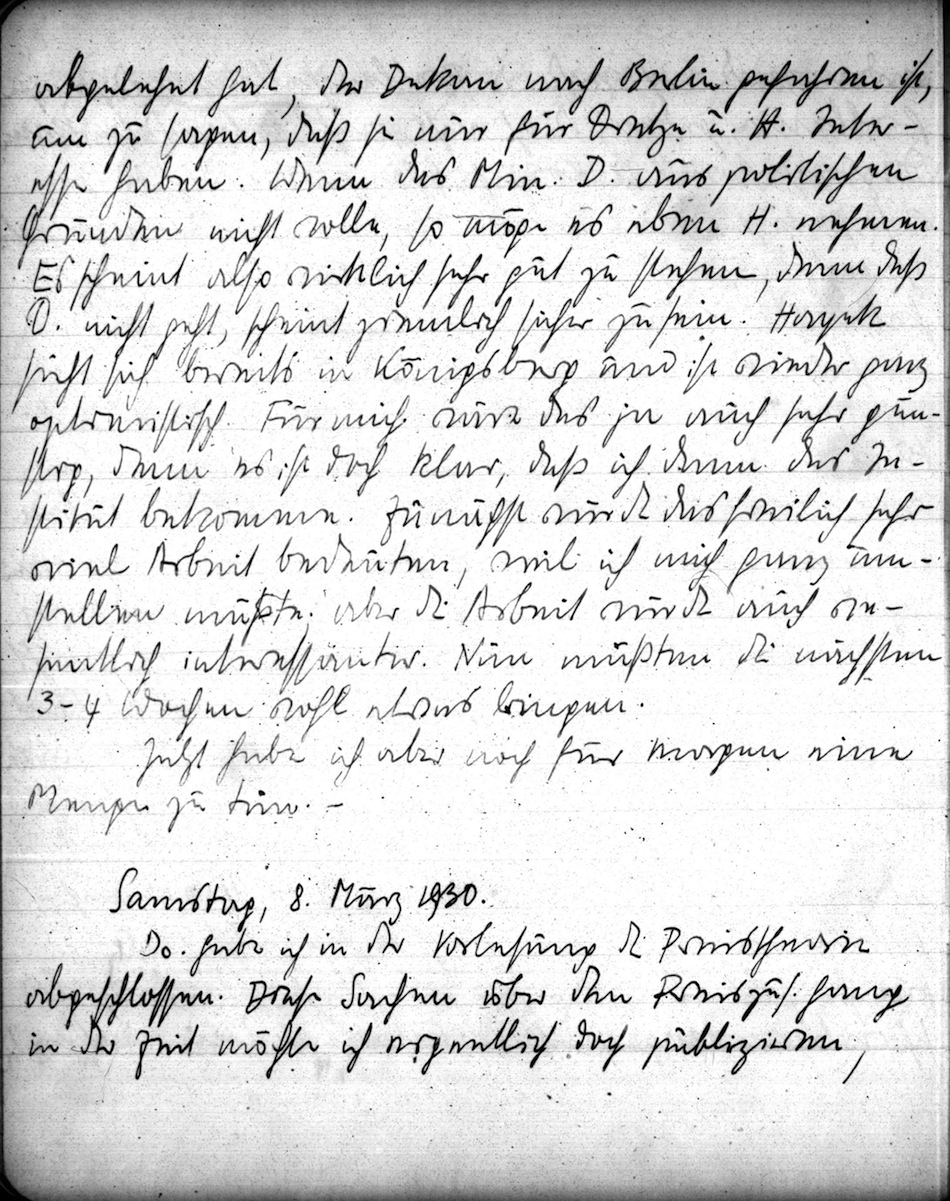 abgelehnt hat, der Dekan nach Berlin gefahren ist,
um zu sagen, daß sie nur für Dietze u. H. Inter-
esse haben. Wenn das Min. D. aus politischen
Gründen nicht wolle, so möge es eben H. nehmen.
Es scheint also wirklich sehr gut zu stehen, denn daß
D. nicht geht, scheint ziemlich sicher zu sein. Hayek
sieht sich bereits in Königsberg und ist wieder ganz
optimistisch. Für mich wäre das ja auch sehr gün-
stig, denn es ist doch klar, daß ich dann das In-
stitut bekomme. Zunächst würde das freilich sehr
viel Arbeit bedeuten, weil ich mich ganz um-
stellen müßte. aber die Arbeit würde auch we-
sentlich interessanter. Nun müßten die nächsten
3-4 Wochen wohl etwas bringen.
Jetzt habe ich aber noch für morgen eine
Menge zu tun. –
Samstag, 8. März 1930.
Do. habe ich in der Vorlesung die Preistheorie
abgeschlossen. Diese Sachen über den Preiszus.hang
in der Zeit möchte ich eigentlich doch publizieren,